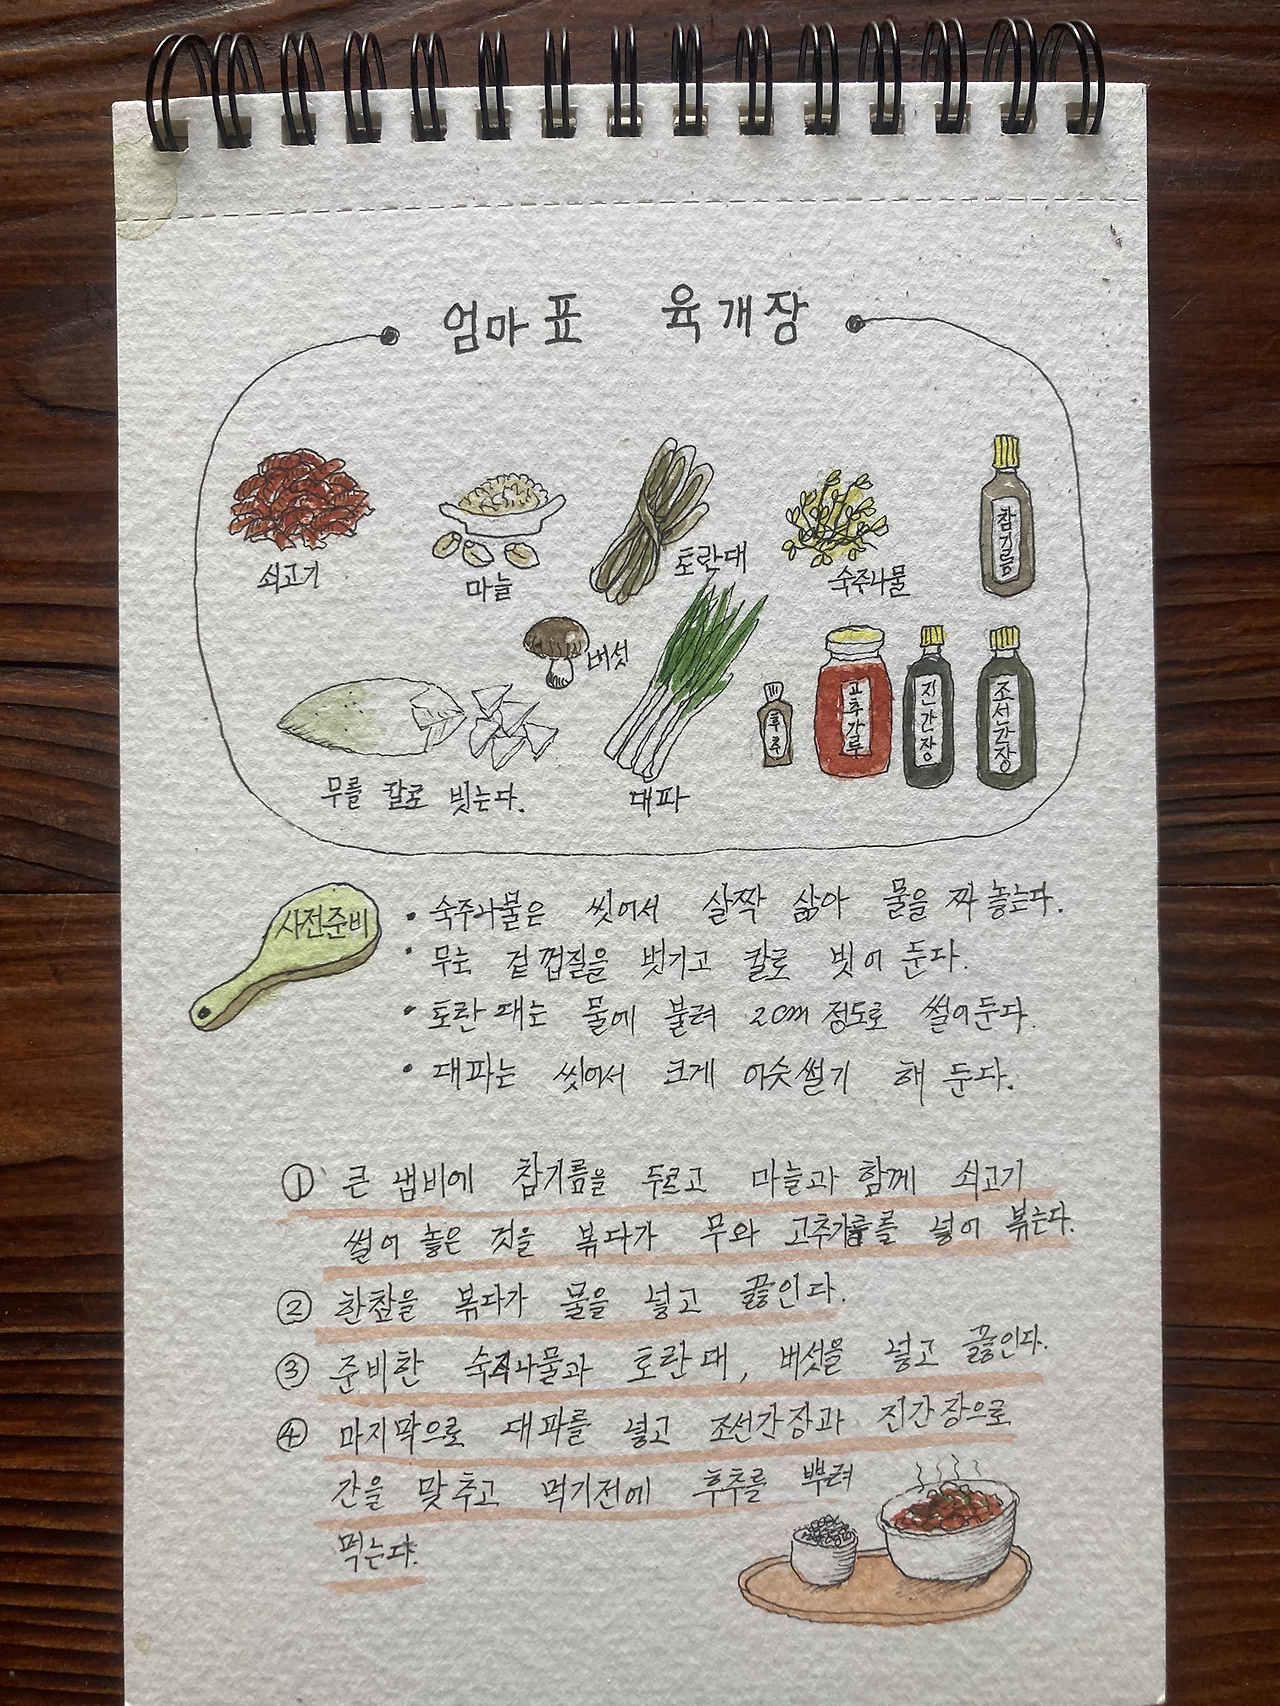 엄마표 육개장
쇠고기
마늘
토란대
숙주나물
참기름
버섯
무를 칼로 빗는다.
대파
후추
고추가루
진간장
조선간장
사전준비
• 숙주나물은 씻어서 살짝 삶아 물을 짜 놓는다.
• 무는 겉껍질을 벗기고 칼로 빗어 둔다.
• 토란대는 물에 불려 2cm 정도로 썰어둔다.
• 대파는 씻어서 크게 어슷썰기 해 둔다.
① 큰 냄비에 참기름을 두르고 마늘과 함께 쇠고기
썰어 놓은 것을 볶다가 무와 고추가루를 넣어 볶는다.
② 한참을 볶다가 물을 넣고 끓인다.
③ 준비한 숙주나물과 토란대, 버섯을 넣고 끓인다.
④ 마지막으로 대파를 넣고 조선간장과 진간장으로
간을 맞추고 먹기전에 후추를 뿌려
먹는다.